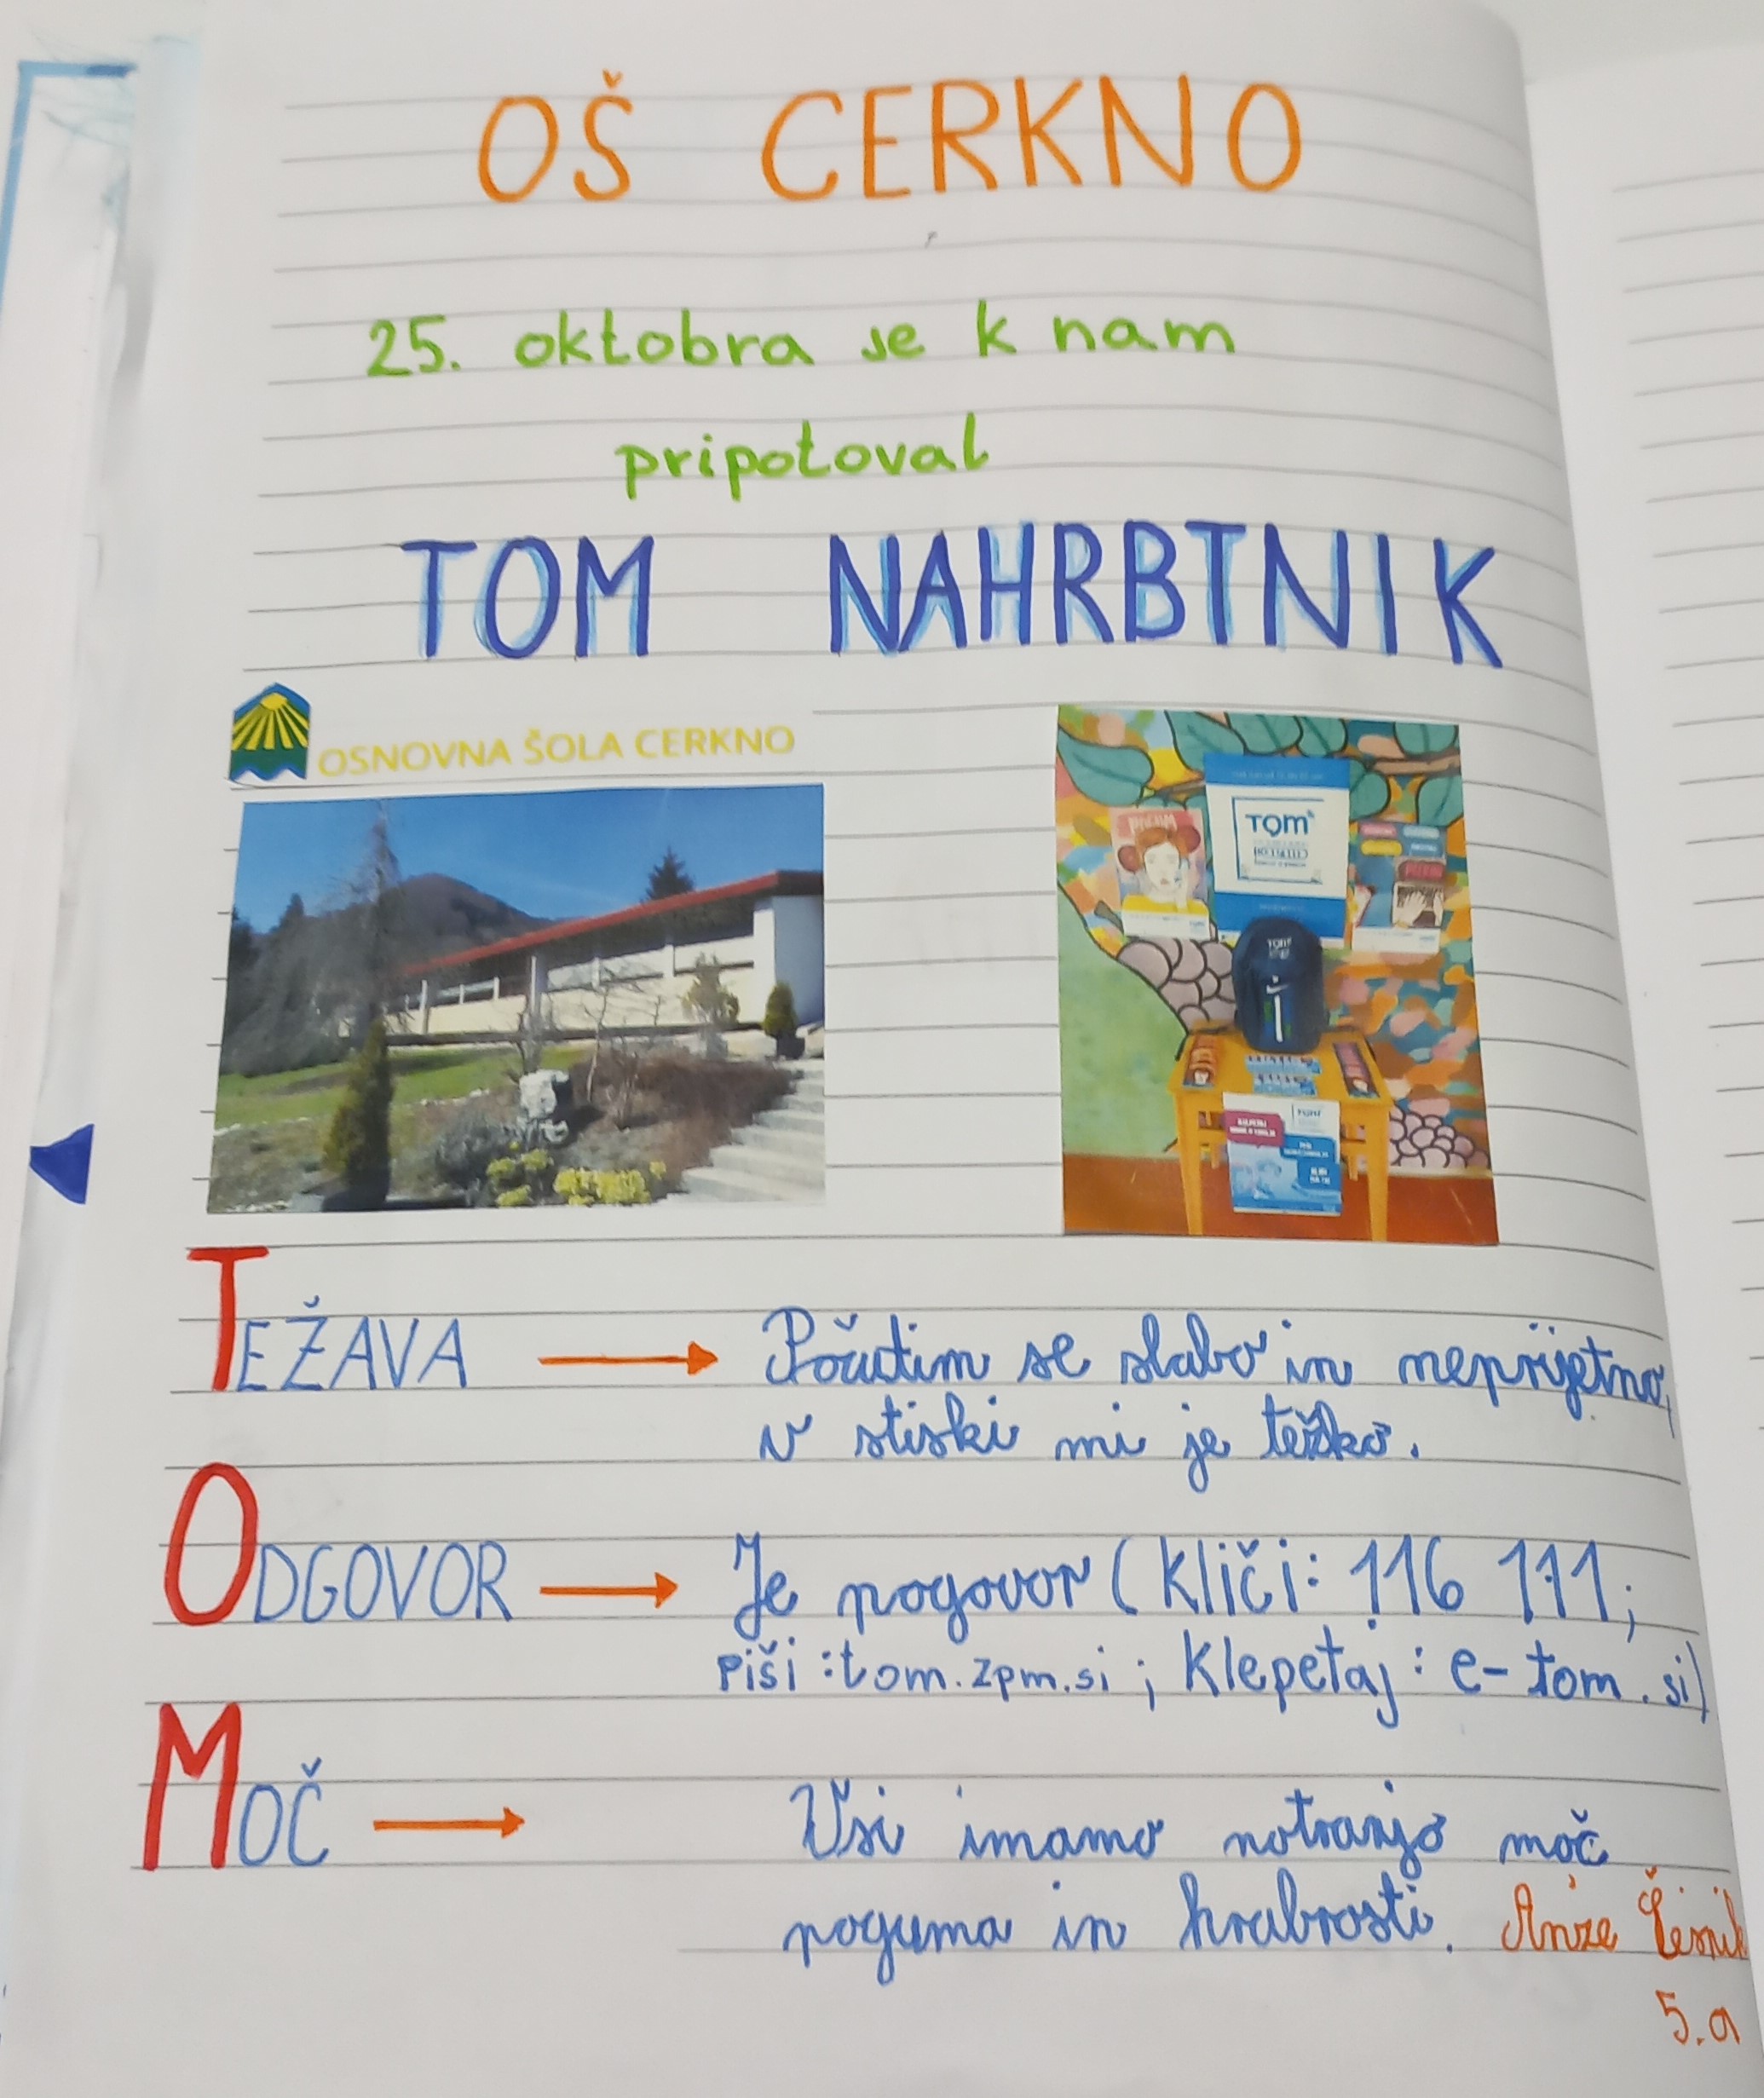 OŠ CERKNO
25. oktobra se k nam
pripotoval
TOM NAHRBTNIK
OSNOVNA ŠOLA CERKNO
TOM
TOM
TEŽAVA → Počutim se slabo in neprijetno,
v stiski mi je težko.
ODGOVOR → Je pogovor (Kliči: 116 111;
Piši: tom.zpm.si; Klepetaj: e-tom.si)
MOČ → Vsi imamo notranjo moč
poguma in hrabrosti. Anže
5.a